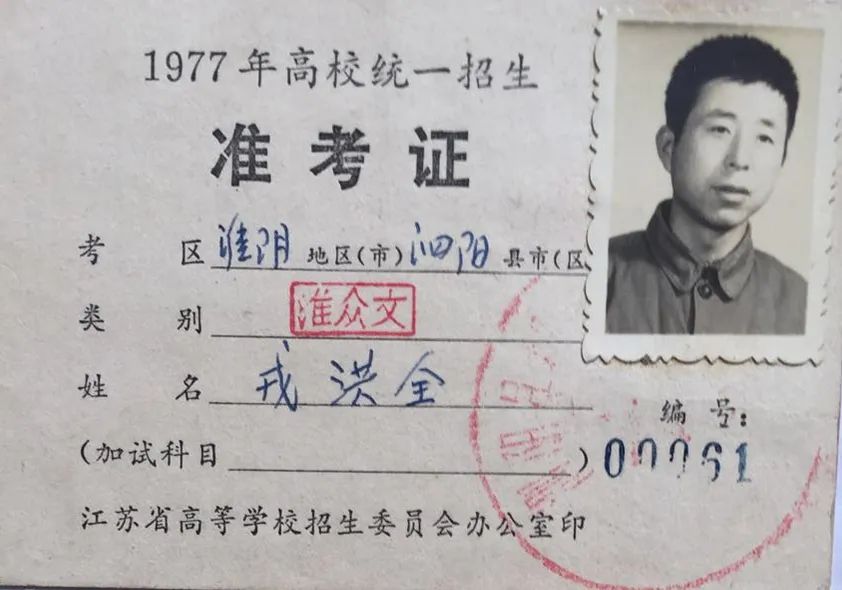 1977年高校统一招生
准考证
考 区 淮阴 地区(市) 泗阳 县市(区
类 别 淮众文
姓 名 戎洪全
编 号:
(加试科目 ) 00061
江苏省高等学校招生委员会办公室印